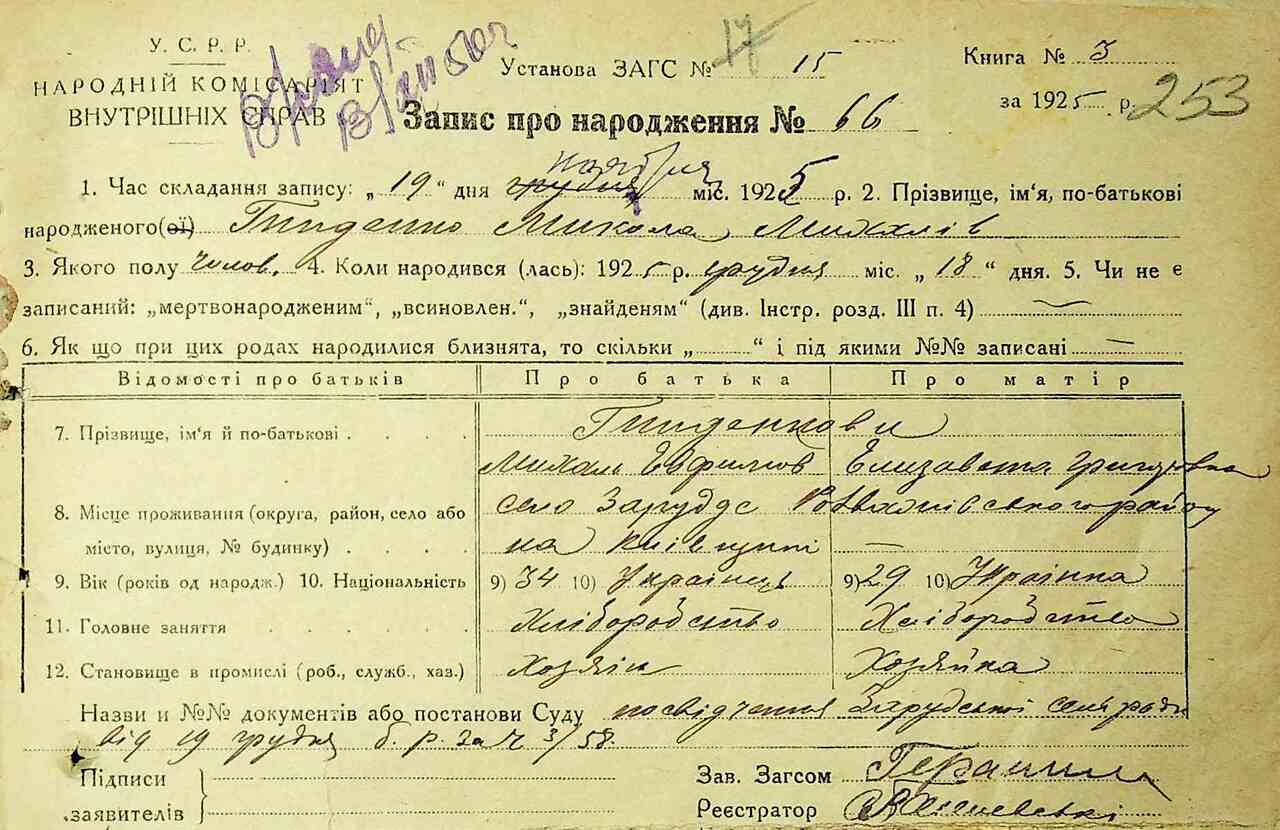 У. С. Р. Р.
НАРОДНІЙ КОМІСАРІЯТ
ВНУТРІШНІХ СПРАВ
17
Установа ЗАГС № 15
Книга № 3
за 1925 р.
253
Запис про народження № 66
1. Час складання запису: „ 19 “ дня грудня міс. 1925 р. 2. Прізвище, ім'я, по-батькові
народженого(ої) Микола Михалів
3. Якого полу чолов. 4. Коли народився (лась): 1925 р. грудня міс. „ 18 “ дня. 5. Чи не є
записаний: „мертвонародженим“, „всиновлен.“, „знайденям“ (див. Інстр. розд. III п. 4)
6. Як що при цих родах народилися близнята, то скільки „ “ і під якими №№ записані —
Відомості про батьків Про батька Про матір
7. Прізвище, ім'я й по-батькові . . . .
Михаль Єфимов Елизавета
8. Місце проживання (округа, район, село або село Заруддє району
місто, вулиця, № будинку) . . . . на Київщині —
9. Вік (років од народж.) 10. Національність 9) 34 10) Українець 9) 29 10) Українка
11. Головне заняття . . . . . . Хлібородство Хлібородство
12. Становище в промислі (роб., служб., хаз.) Хозяін Хозяйка
Назви и №№ документів або постанови Суду посвідчення Зарудської сельради
від 19 грудня б. р. за ч 3/58.
Підписи
заявителів
Зав. Загсом
Реєстратор